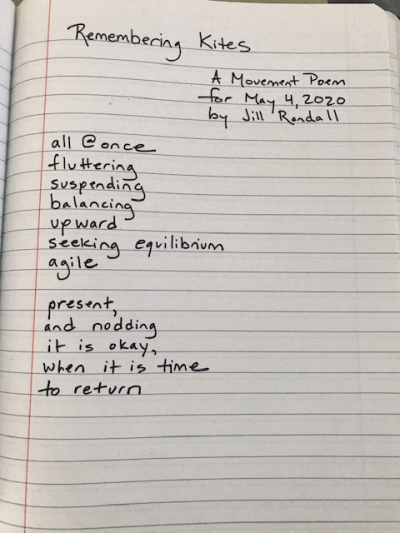 Remembering Kites
A Movement Poem
for May 4, 2020
by Jill Randall
all @ once
fluttering
suspending
balancing
upward
seeking equilibrium
agile
present,
and nodding
it is okay,
when it is time
to return